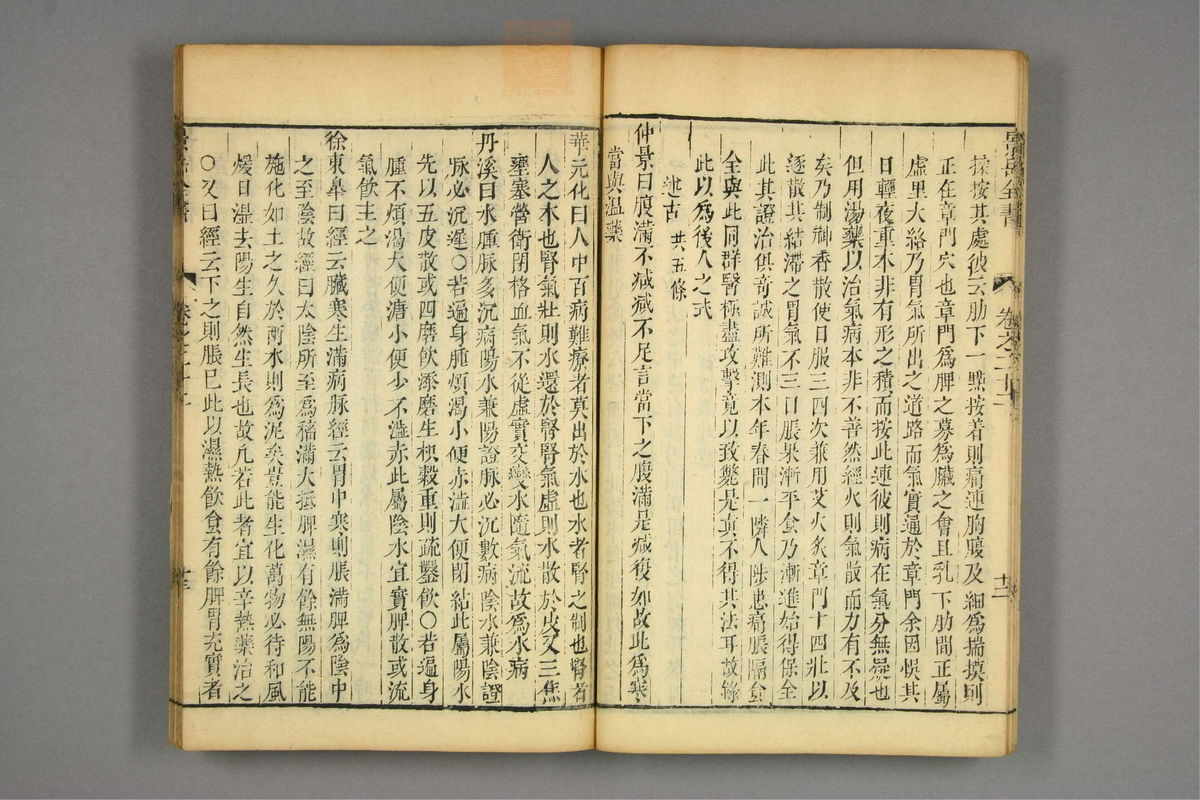 景岳全書
卷之二十二
揉按其處彼云肋下一㸃按着則痛連胸腹及細爲揣摸則
正在章門穴也章門爲脾之募爲臟之會且乳下肋間正屬
虛里大絡乃胃氣所出之道路而氣實通於章門余因悞其
日輕夜重本非有形之積而按此連彼則病在氣分無疑也
但用湯藥以治氣病本非不善然經火則氣散而力有不及
矣乃制神香散使日服三四次兼用艾火灸章門十四壯以
逐散其結滯之胃氣不三日脹果漸平食乃漸進始得保全
此其證治俱奇誠所難測本年春間一隣人陟患痛脹隔食
全與此同群醫極盡攻擊竟以致斃是真不得其法耳故錄
此以爲後人之式
述古 共五條
仲景曰腹滿不減減不足言當下之腹滿是減復如故此爲寒
當與溫藥
華元化曰人中百病難療者莫出於水也水者腎之制也腎者
人之本也腎氣壯則水還於腎腎氣虛則水散於皮又三焦
壅塞營衛閉格血氣不從虛實交變水隨氣流故爲水病
丹溪曰水腫脉多沉病陽水兼陽證脉必沉數病陰水兼陰證
脉必沉遲〇若遍身腫煩渴小便赤澁大便閉結此屬陽水
先以五皮散或四磨飲添磨生枳殻重則疏鑿飲〇若遍身
腫不煩渴大便溏小便少不澁赤此屬陰水宜實脾散或流
氣飲主之
徐東臯曰經云臟寒生滿病脉經云胃中寒則脹滿脾爲陰中
之至陰故經曰太陰所至爲穡滿大抵脾濕有餘無陽不能
施化如土之久於雨水則爲泥矣豈能生化萬物必待和風
煖日濕去陽生自然生長也故凡若此者宜以辛熱藥治之
〇又曰經云下之則脹已此以濕熱飲食有餘脾胃充實者